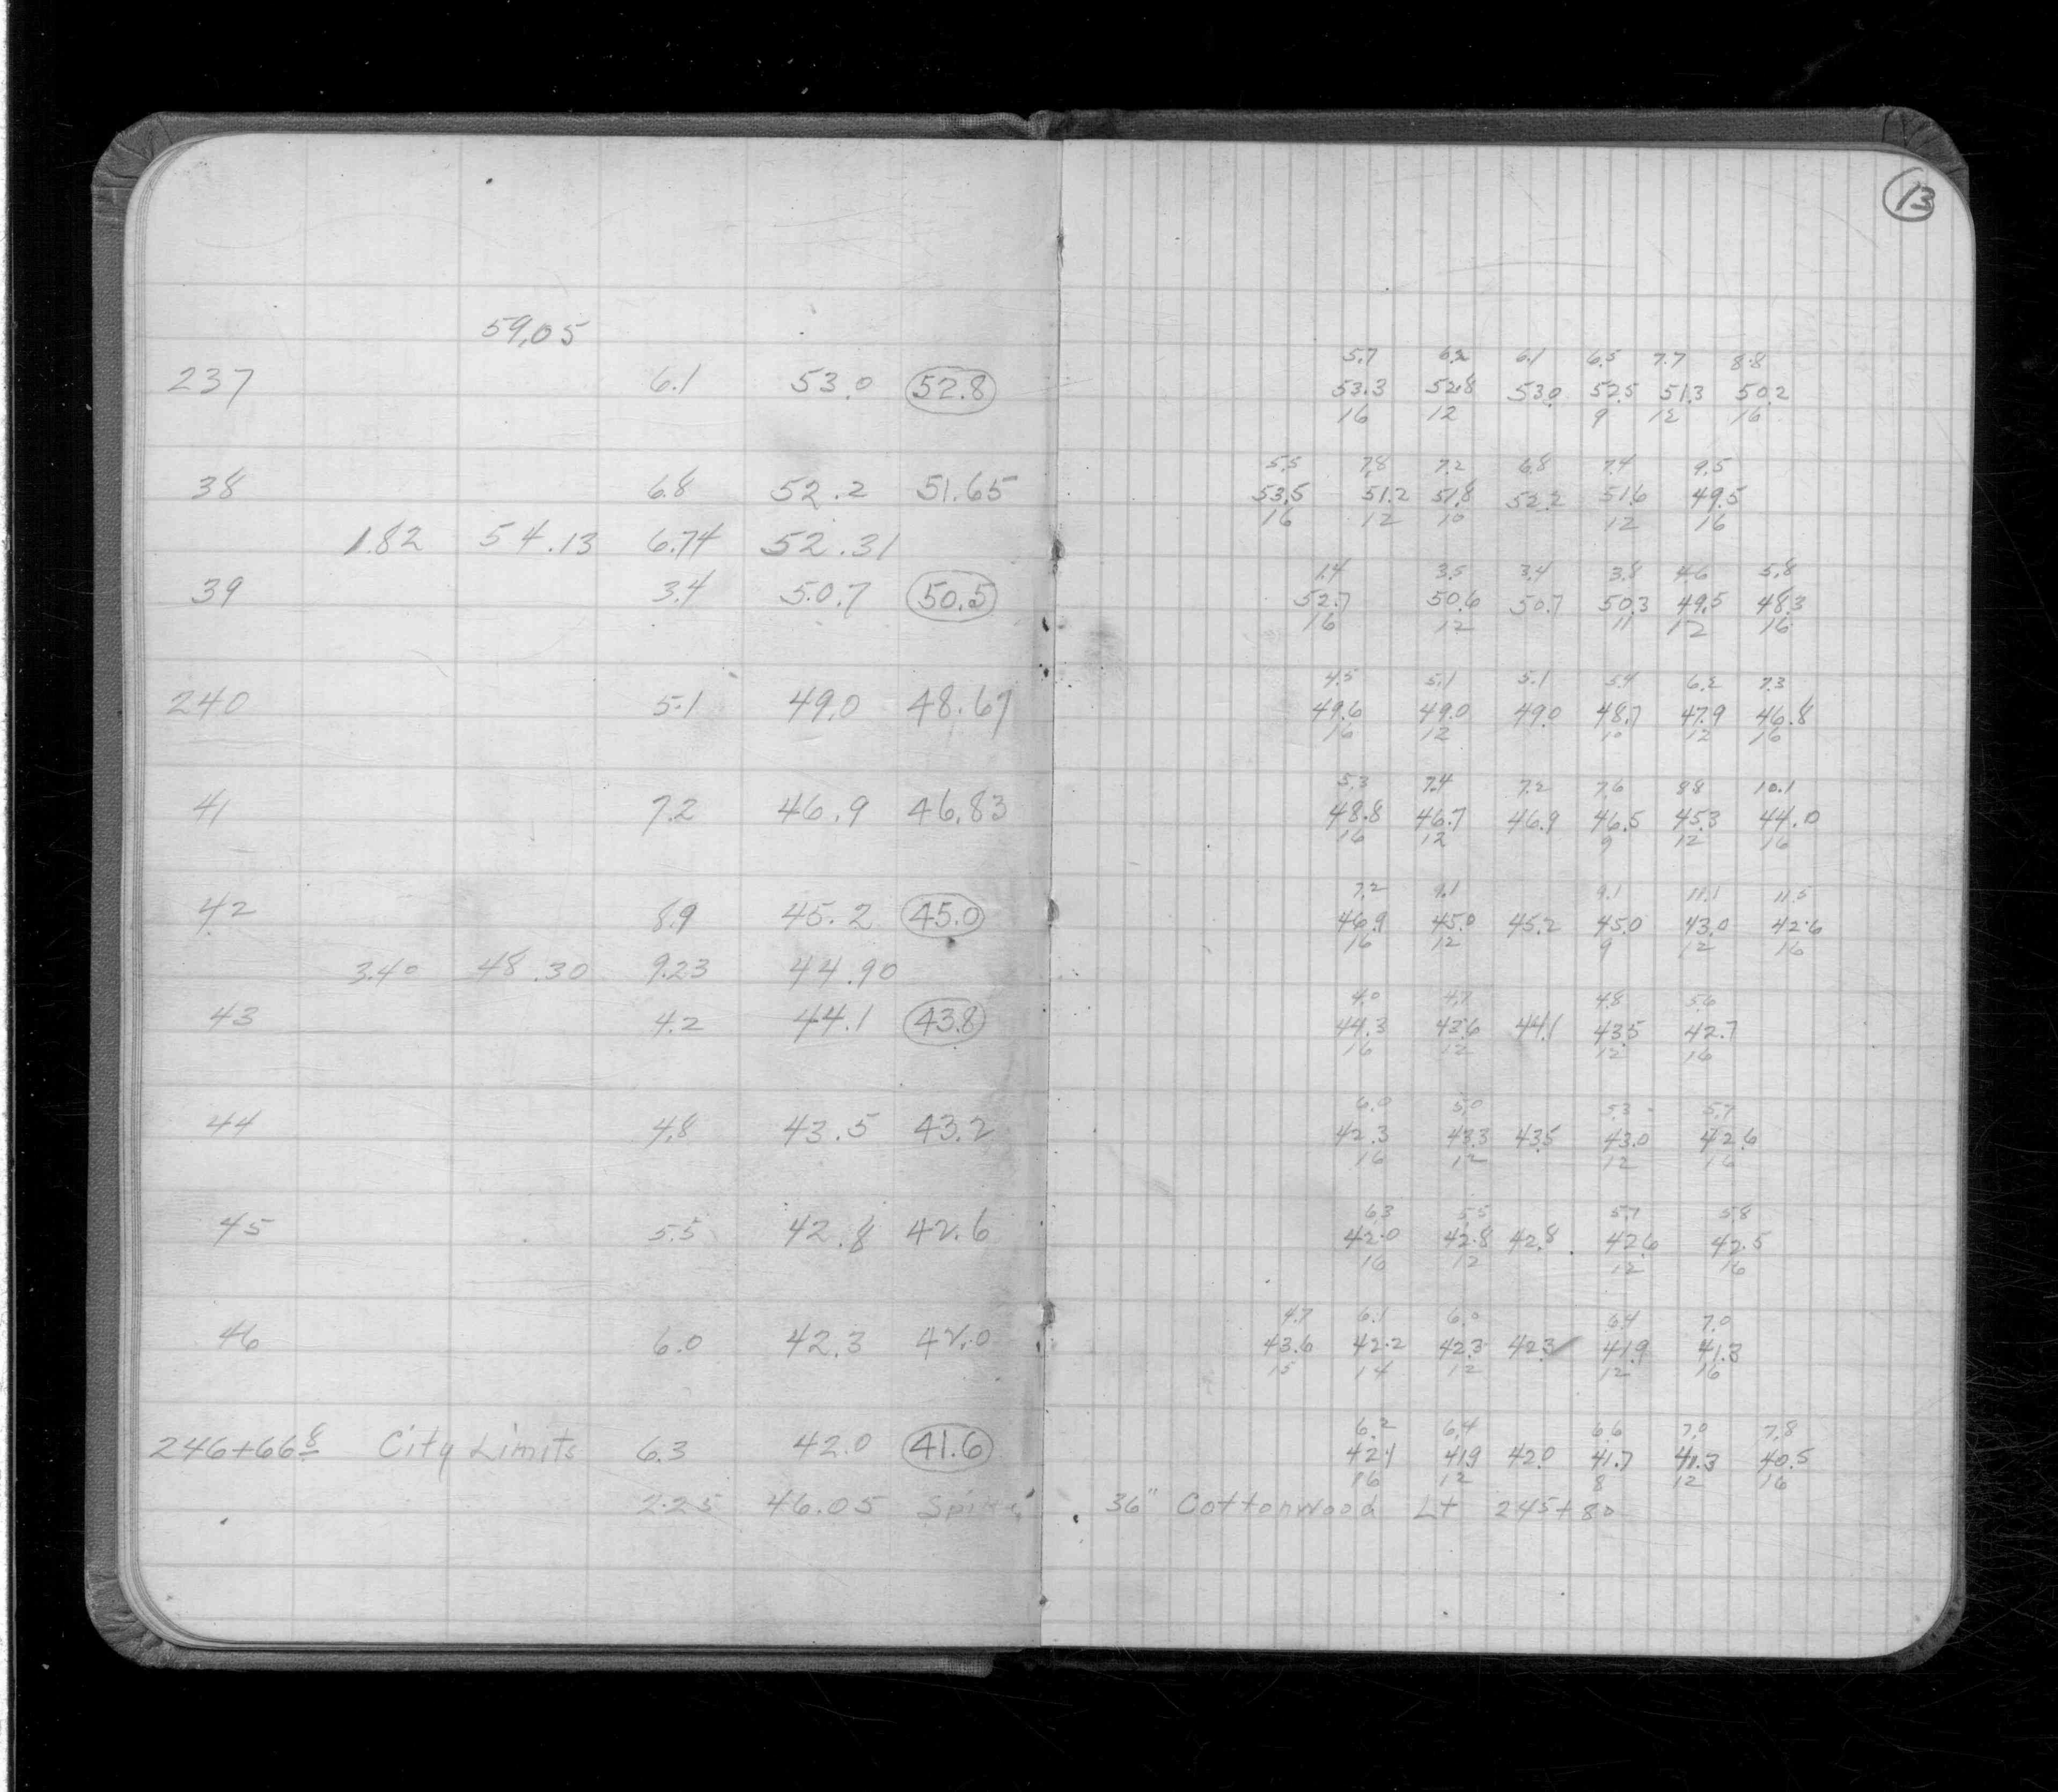 13
59.05
5.7 6.2 6.1 6.5 7.7 8.8
237 6.1 53.0 52.8 53.3 52.8 53.0 52.5 51.3 50.2
16 12 9 12 16
5.5 7.8 7.2 6.8 7.4 9.5
38 6.8 52.2 51.65 53.5 51.2 51.8 52.2 51.6 49.5
16 12 10 12 16
1.82 54.13 6.74 52.31
1.4 3.5 3.4 3.8 4.6 5.8
39 3.4 50.7 50.5 52.7 50.6 50.7 50.3 49.5 48.3
16 12 11 12 16
4.5 5.1 5.1 5.4 6.2 7.3
240 5.1 49.0 48.67 49.6 49.0 49.0 48.7 47.9 46.8
16 12 10 12 16
5.3 7.4 7.2 7.6 8.8 10.1
41 7.2 46.9 46.83 48.8 46.7 46.9 46.5 45.3 44.0
16 12 9 12 16
7.2 9.1 9.1 11.1 11.5
42 8.9 45.2 45.0 46.9 45.0 45.2 45.0 43.0 42.6
16 12 9 12 16
3.40 48.30 9.23 44.90
4.0 4.7 4.8 5.6
43 4.2 44.1 43.8 44.3 43.6 44.1 43.5 42.7
16 12 12 16
6.0 5.0 5.3 5.7
44 4.8 43.5 43.2 42.3 43.3 43.5 43.0 42.6
16 12 12 16
6.3 5.5 5.7 5.8
45 5.5 42.8 42.6 42.0 42.8 42.8 42.6 42.5
16 12 12 16
4.7 6.1 6.0 6.4 7.0
46 6.0 42.3 42.0 43.6 42.2 42.3 42.3 41.9 41.3
15 14 12 12 16
6.2 6.4 6.6 7.0 7.8
246+66 8 City Limits 6.3 42.0 41.6 42.1 41.9 42.0 41.7 41.3 40.5
16 12 8 12 16
2.25 46.05 Spike 36" Cottonwood Lt 245+80